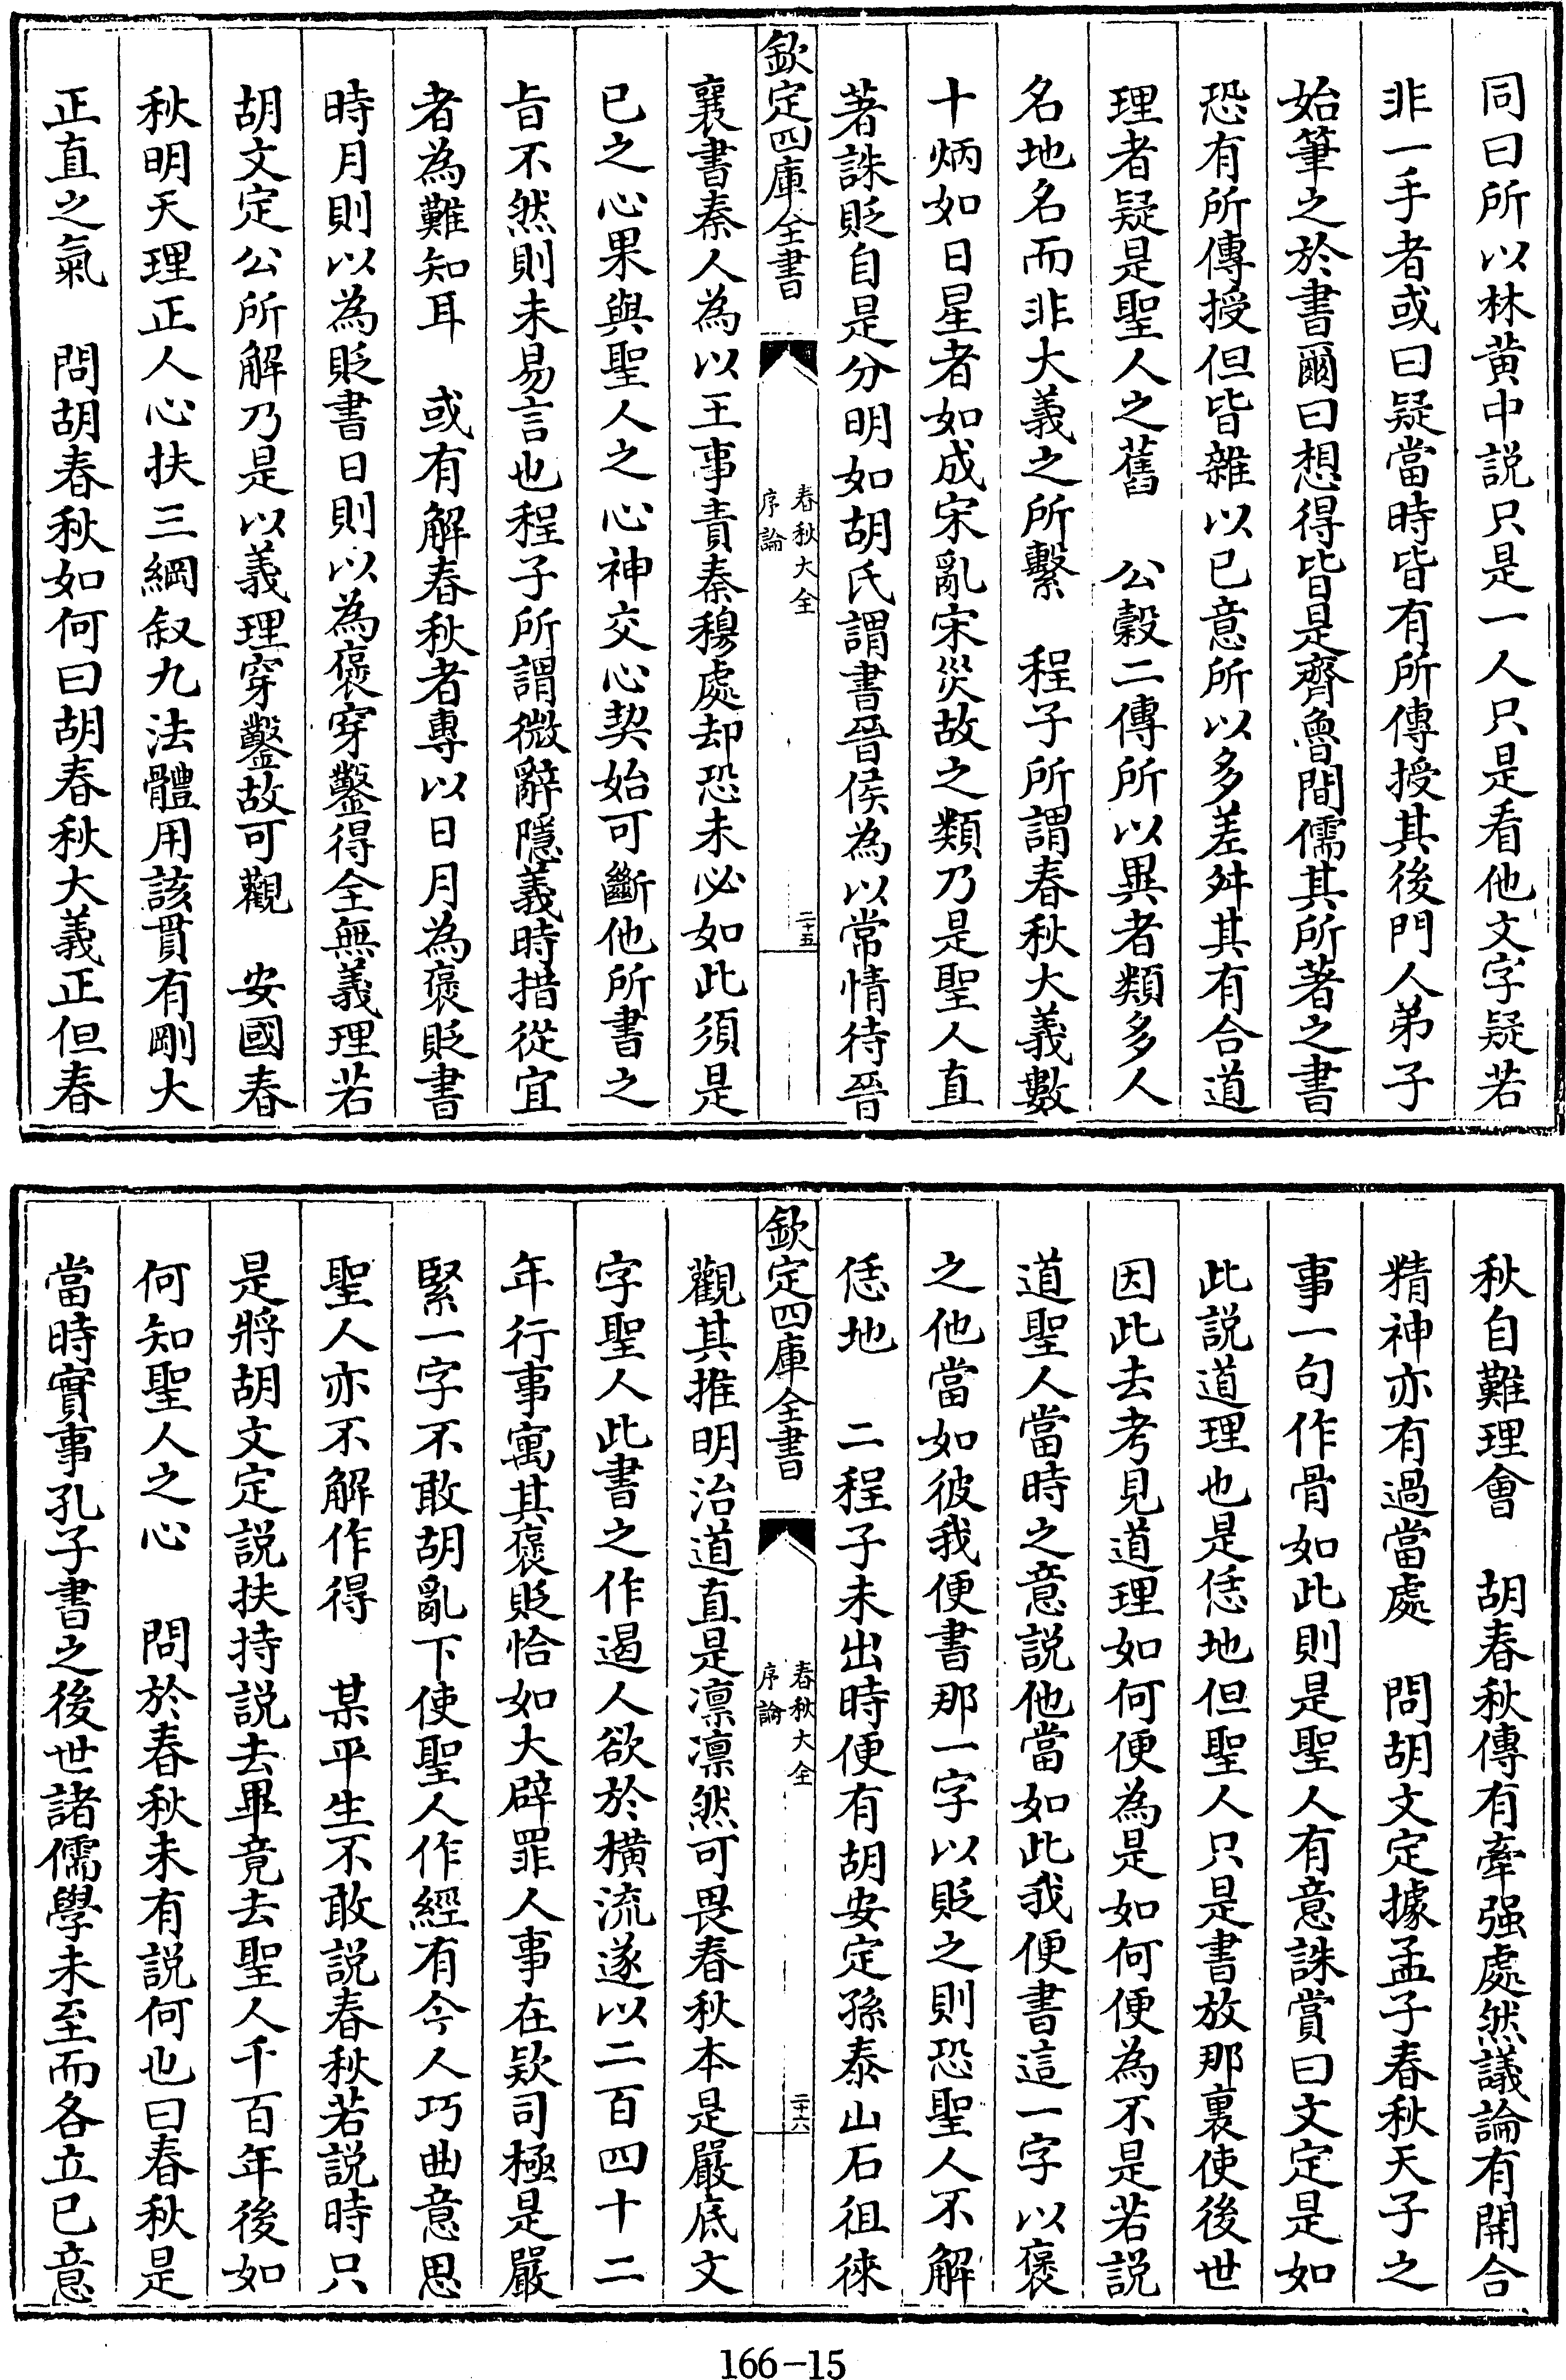 同曰所以林黄中説只是一人只是看他文字疑若
非一手者或曰疑當時皆有所傳授其後門人弟子
始筆之於書爾曰想得皆是齊魯間儒其所著之書
恐有所傳授但皆雜以已意所以多差舛其有合道
理者疑是聖人之舊　公穀二傳所以異者類多人
名地名而非大義之所繫　程子所謂春秋大義數
十炳如日星者如成宋亂宋災故之類乃是聖人直
著誅貶自是分明如胡氏謂書晉侯為以常情待晉
欽定四庫全書
春秋大全
序論
二十五
襄書秦人為以王事責秦穆處却恐未必如此須是
已之心果與聖人之心神交心契始可斷他所書之
旨不然則未易言也程子所謂微辭隱義時措從宜
者為難知耳　或有解春秋者專以日月為褒貶書
時月則以為貶書日則以為褒穿鑿得全無義理若
胡文定公所解乃是以義理穿鑿故可觀　安國春
秋明天理正人心扶三綱叙九法體用該貫有剛大
正直之氣　問胡春秋如何曰胡春秋大義正但春
秋自難理會　胡春秋傳有牽强處然議論有開合
精神亦有過當處　問胡文定據孟子春秋天子之
事一句作骨如此則是聖人有意誅賞曰文定是如
此説道理也是恁地但聖人只是書放那裏使後世
因此去考見道理如何便為是如何便為不是若説
道聖人當時之意説他當如此我便書這一字以褒
之他當如彼我便書那一字以貶之則恐聖人不解
恁地　二程子未出時便有胡安定孫泰山石徂徠
欽定四庫全書
春秋大全
序論
二十六
觀其推明治道直是凛凛然可畏春秋本是嚴底文
字聖人此書之作遏人欲於横流遂以二百四十二
年行事寓其褒貶恰如大辟罪人事在欵司極是嚴
緊一字不敢胡亂下使聖人作經有今人巧曲意思
聖人亦不解作得　某平生不敢説春秋若説時只
是將胡文定説扶持説去畢竟去聖人千百年後如
何知聖人之心　問於春秋未有説何也曰春秋是
當時實事孔子書之後世諸儒學未至而各立已意
166-15